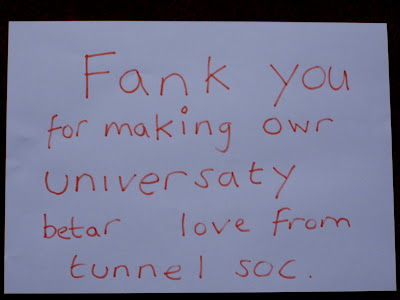 Fank you
for making owr
universaty
betar love from
tunnel soc.